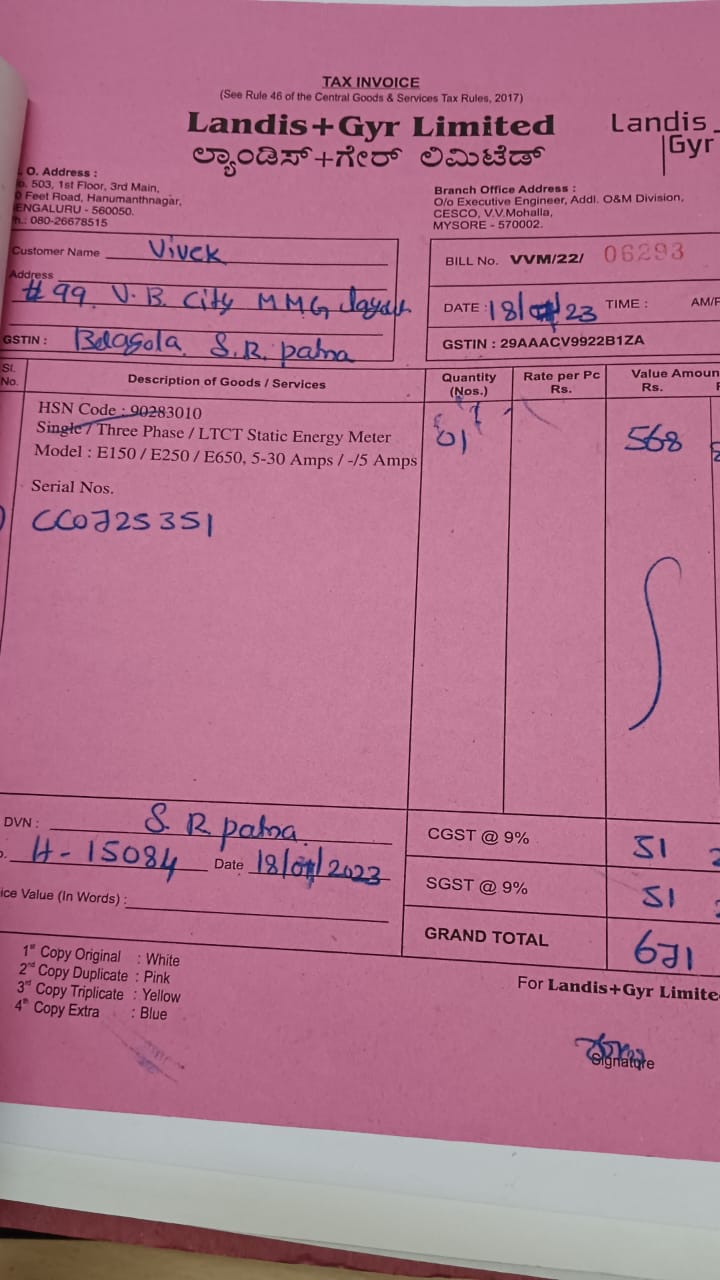 TAX INVOICE
(See Rule 46 of the Central Goods & Services Tax Rules, 2017)
Landis+Gyr Limited
ಲ್ಯಾಂಡಿಸ್+ಗೇರ್ ಲಿಮಿಟೆಡ್
Landis
Gyr
O. Address :
503, 1st Floor, 3rd Main,
Feet Road, Hanumanthnagar,
ENGALURU - 560050.
h.: 080-26678515
Branch Office Address :
O/o Executive Engineer, Addl. O&M Division,
CESCO, V.V.Mohalla,
MYSORE - 570002.
Customer Name Vivek
Address
#99. V. B. City MMG
GSTIN : Belagola S. R. patna
BILL No. VVM/22/ 06293
DATE : 18/ /23 TIME : AM/P
GSTIN : 29AAACV9922B1ZA
Sl. No. Description of Goods / Services Quantity (Nos.) Rate per Pc Rs. Value Amoun Rs.
HSN Code : 90283010
Single / Three Phase / LTCT Static Energy Meter 01 568
Model : E150 / E250 / E650, 5-30 Amps / -/5 Amps
Serial Nos.
DVN : S. R patna
CGST @ 9% 51
H-15084 Date 18/ /2023
SGST @ 9% 51
ice Value (In Words) :
GRAND TOTAL 671
1st Copy Original : White
2nd Copy Duplicate : Pink
3rd Copy Triplicate : Yellow
4th Copy Extra : Blue
For Landis+Gyr Limite
Signature